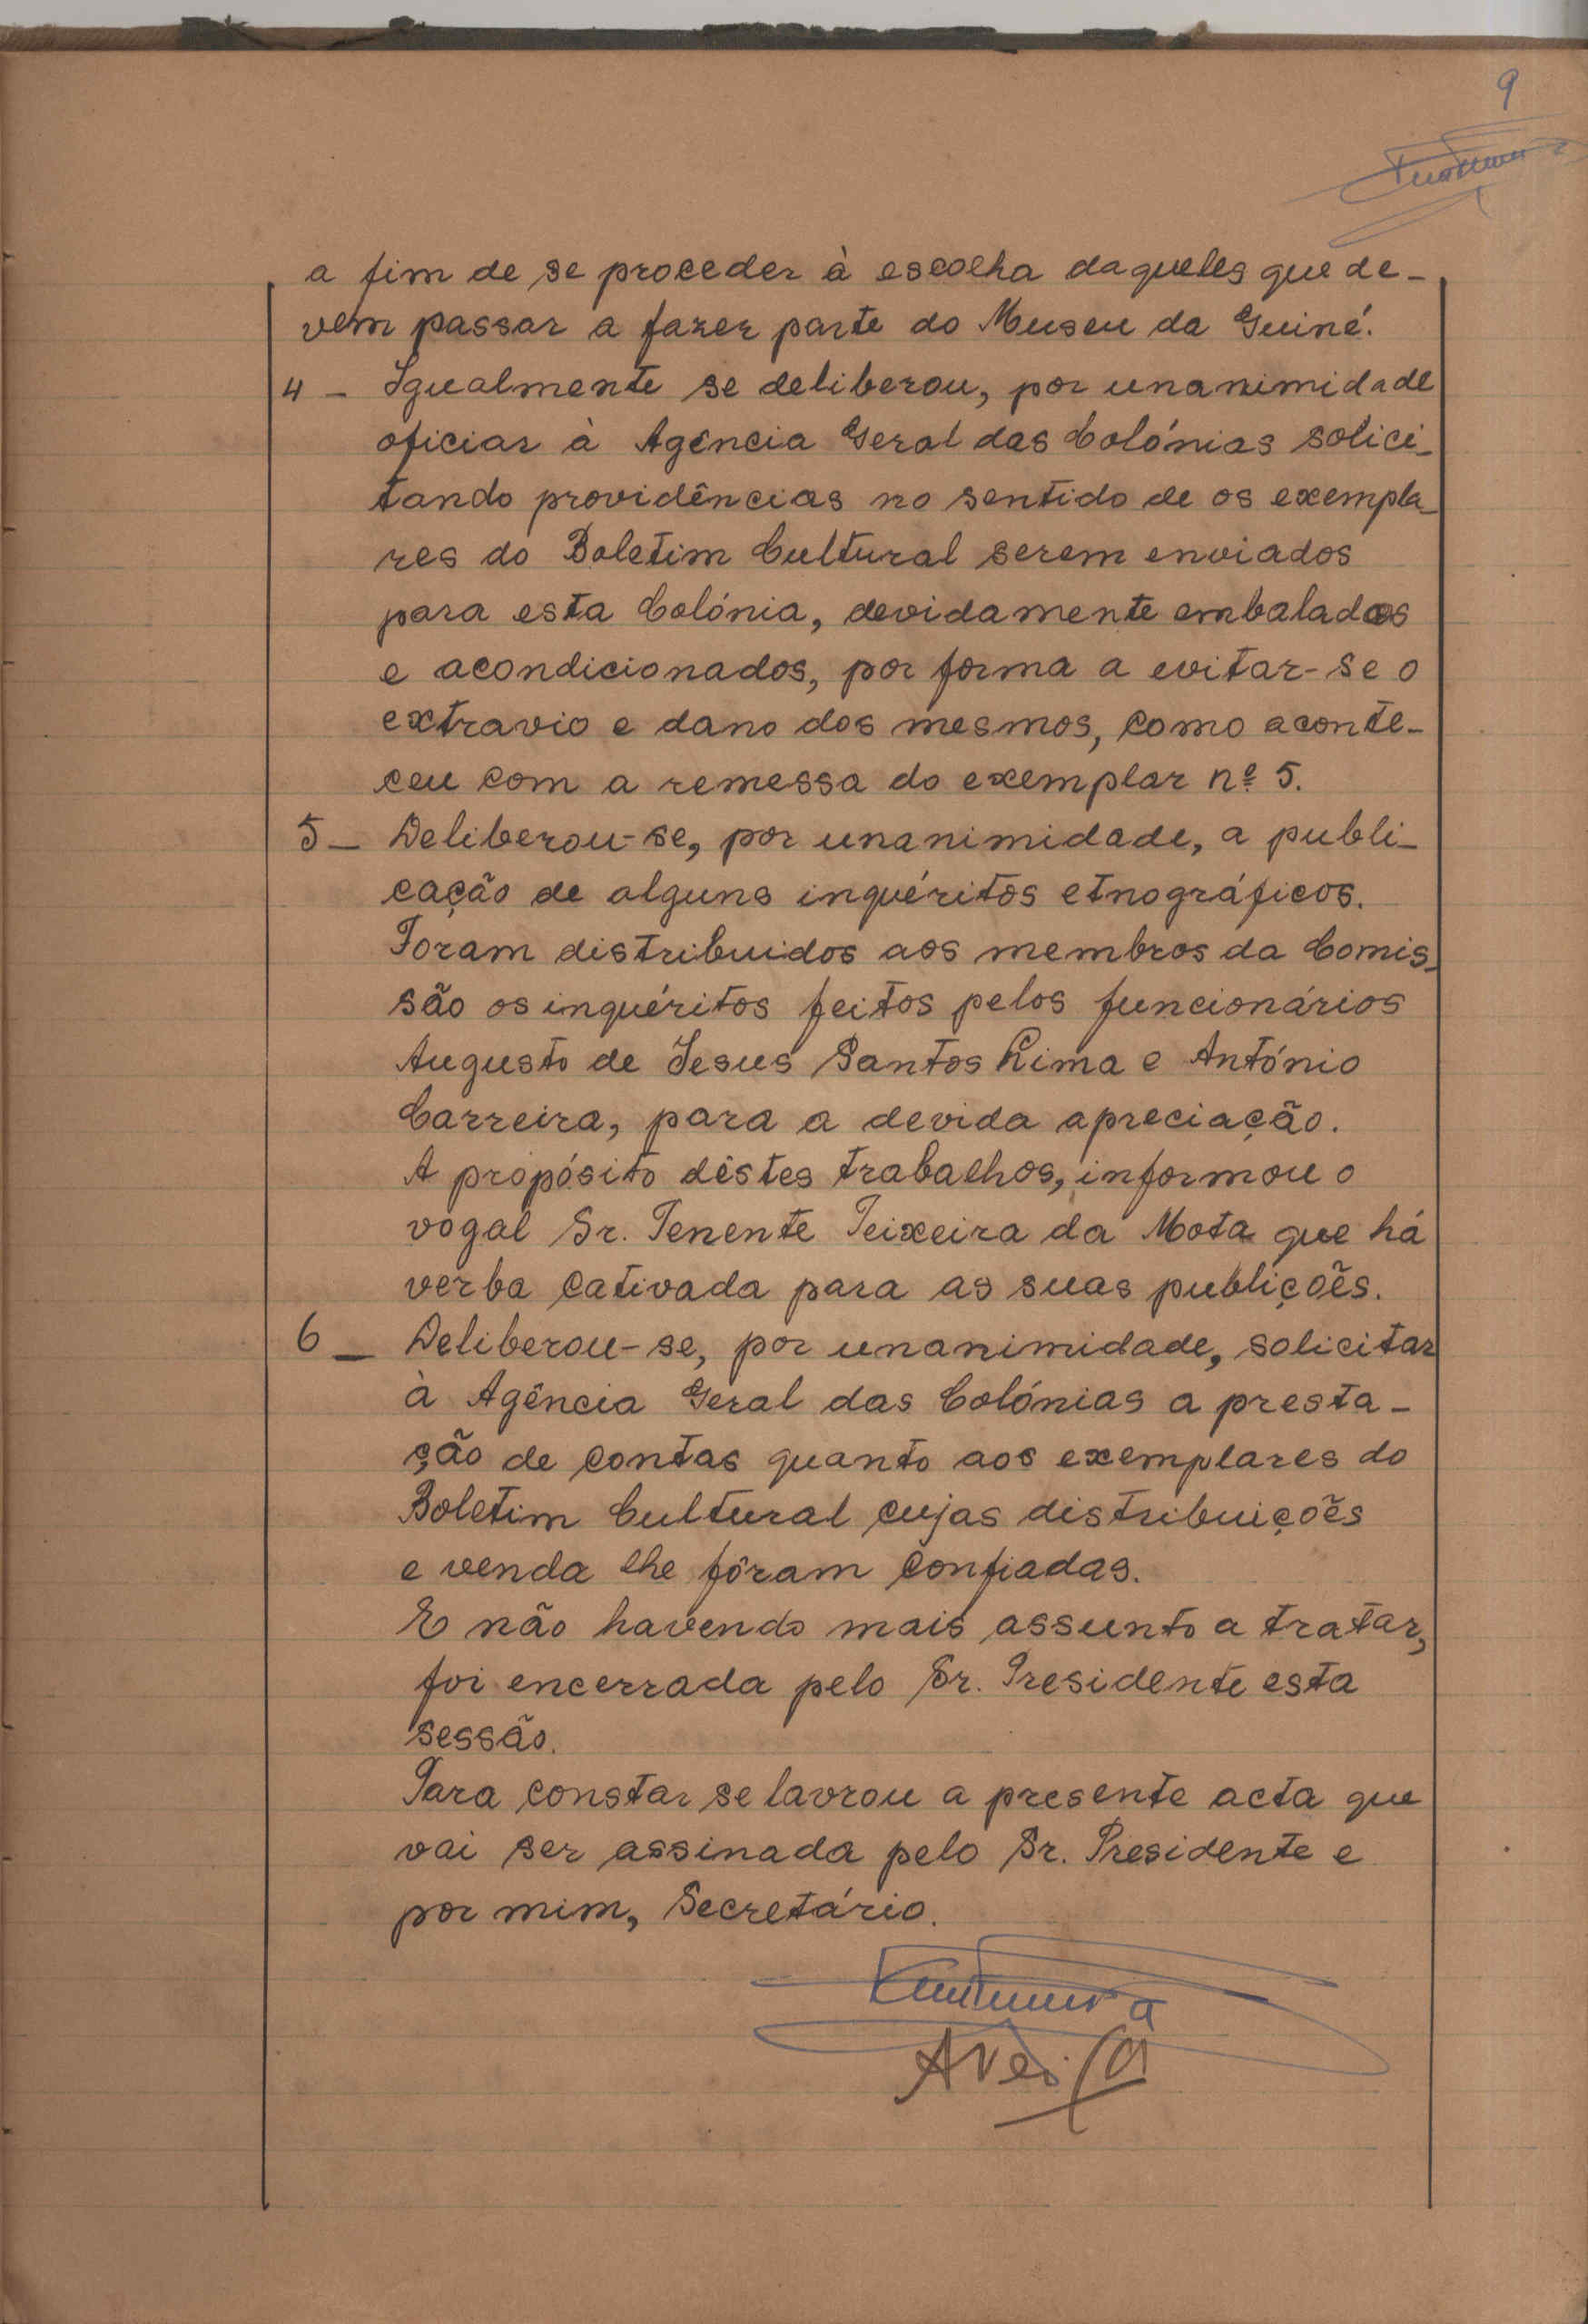 9
a fim de se proceder à escolha daqueles que de-
vem passar a fazer parte do Museu da Guiné.
4 - Igualmente se deliberou, por unanimidade
oficiar à Agência Geral das Colónias solici-
tando providências no sentido de os exempla-
res do Boletim Cultural serem enviados
para esta Colónia, devidamente embalados
e acondicionados, por forma a evitar-se o
extravio e dano dos mesmos, como aconte-
ceu com a remessa do exemplar nº 5.
5 - Deliberou-se, por unanimidade, a publi-
cação de alguns inquéritos etnográficos.
Foram distribuidos aos membros da Comis-
são os inquéritos feitos pelos funcionários
Augusto de Jesus Santos Lima e António
Carreira, para a devida apreciação.
A propósito dêstes trabalhos, informou o
vogal Sr. Tenente Teixeira da Mota que há
verba cativada para as suas publições.
6 - Deliberou-se, por unanimidade, solicitar
à Agência Geral das Colónias a presta-
ção de contas quanto aos exemplares do
Boletim Cultural cujas distribuições
e venda lhe fôram confiadas.
E não havendo mais assunto a tratar,
foi encerrada pelo Sr. Presidente esta
sessão.
Para constar se lavrou a presente acta que
vai ser assinada pelo Sr. Presidente e
por mim, Secretário.